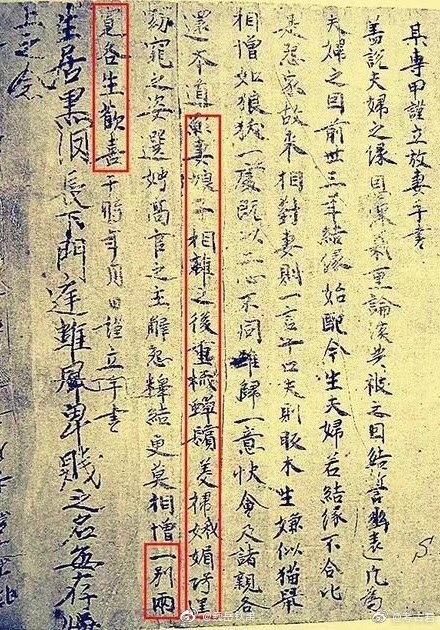 某專甲謹立放妻手書
蓋說夫婦之緣恩深義重論談共被之因結誓幽遠凡為
夫婦之因前世三年結緣始配今生夫婦若結緣不合比
是怨家故來相對妻則一言十口夫則反木生嫌似猫鼠
相憎如狼犺一處既以二心不同難歸一意快會及諸親各
還本道願妻娘子相離之後重梳蟬鬢美掃娥媚巧呈
窈窕之姿選娉高官之主解怨釋結更莫相憎一別兩
寬各生歡喜于時年月日謹立手書
生居黑下門卑賤之名無存
上之念